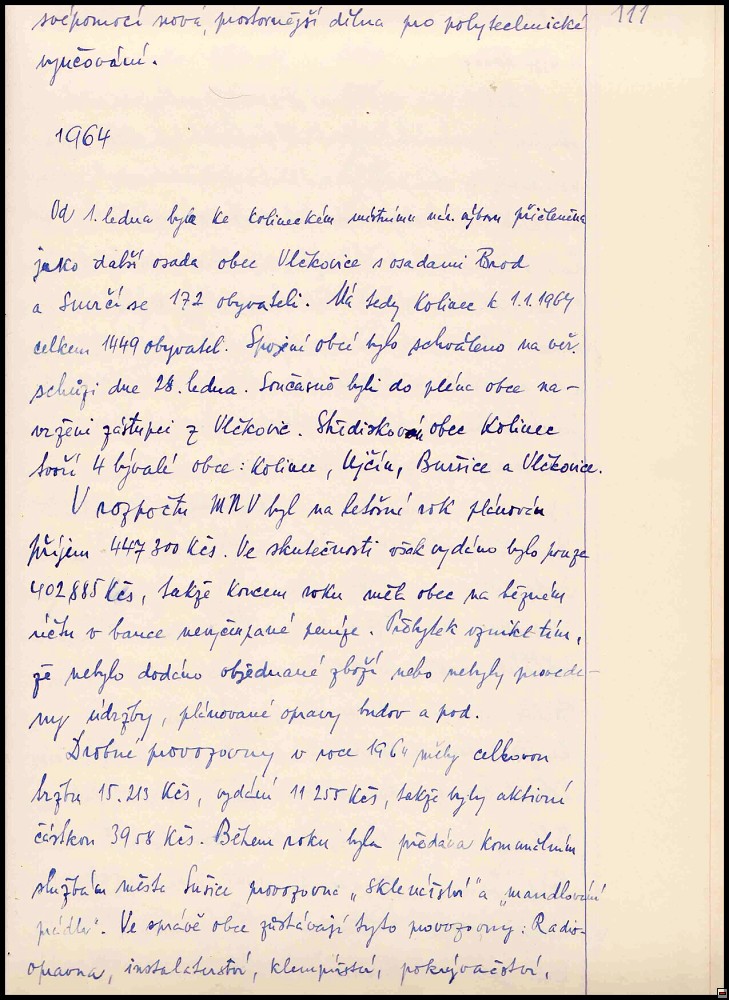 111
svépomocí nová, prostornější dílna pro polytechnické
vyučování.
1964
Od 1. ledna byla ke kolineckém místnímu nár. výboru přičleněna
jako další osada obec Vlčkovice s osadami Brod
a Smrčí se 172 obyvateli. Má tedy Kolinec k 1.1.1964
celkem 1449 obyvatel. Spojení obcí bylo schváleno na veř.
schůzi dne 28. ledna. Současně byli do pléna obce na-
vrženi zástupci z Vlčkovic. Střediskovou obec Kolinec
tvoří 4 bývalé obce: Kolinec, Ujčín, Buršice a Vlčkovice.
V rozpočtu MNV byl na letošní rok plánován
příjem 447 300 Kčs. Ve skutečnosti však vydáno bylo pouze
402.885 Kčs, takže koncem roku měla obec na běžném
účtu v bance nevyčerpané peníze. Přebytek vznikl tím,
že nebylo dodáno objednané zboží nebo nebyly provede-
ny údržby, plánované opravy budov a pod.
Drobné provozovny v roce 1964 měly celkovou
tržbu 15.213 Kčs, vydání 11 255 Kčs, takže byly aktivní
částkou 3958 Kčs. Během roku byla předána komunálním
službám města Sušice provozovna „sklenářství" a „mandlování
prádla". Ve správě obce zůstávají tyto provozovny: Radio-
opravna, instalatérství, klempířství, pokrývačství,